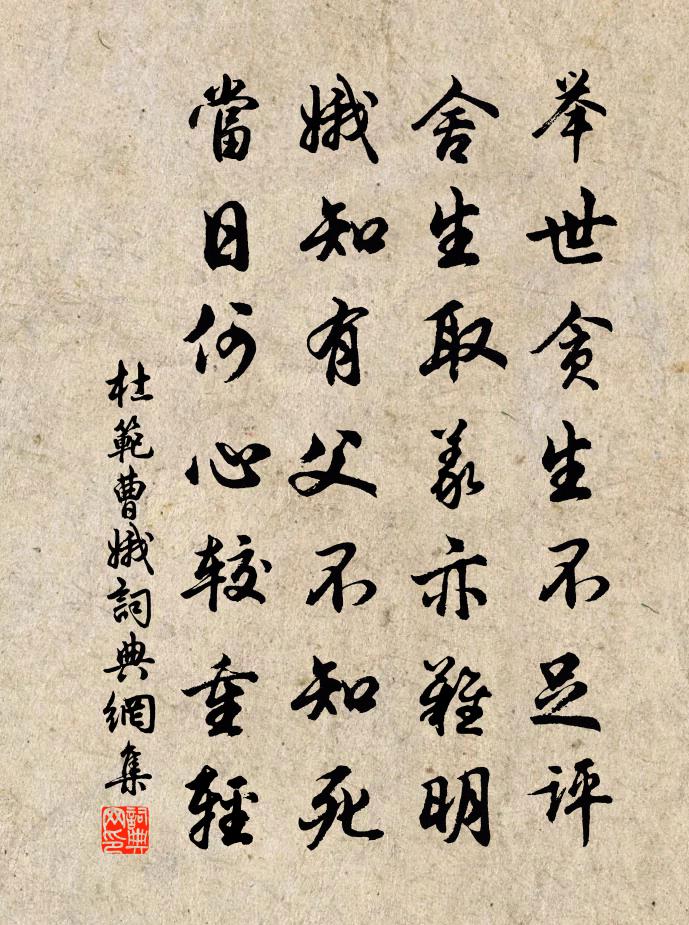 举世贪生不足评
舍生取义亦难明
娥知有父不知死
當日何心较重轻
杜範曹娥詞典網集
詞典网印